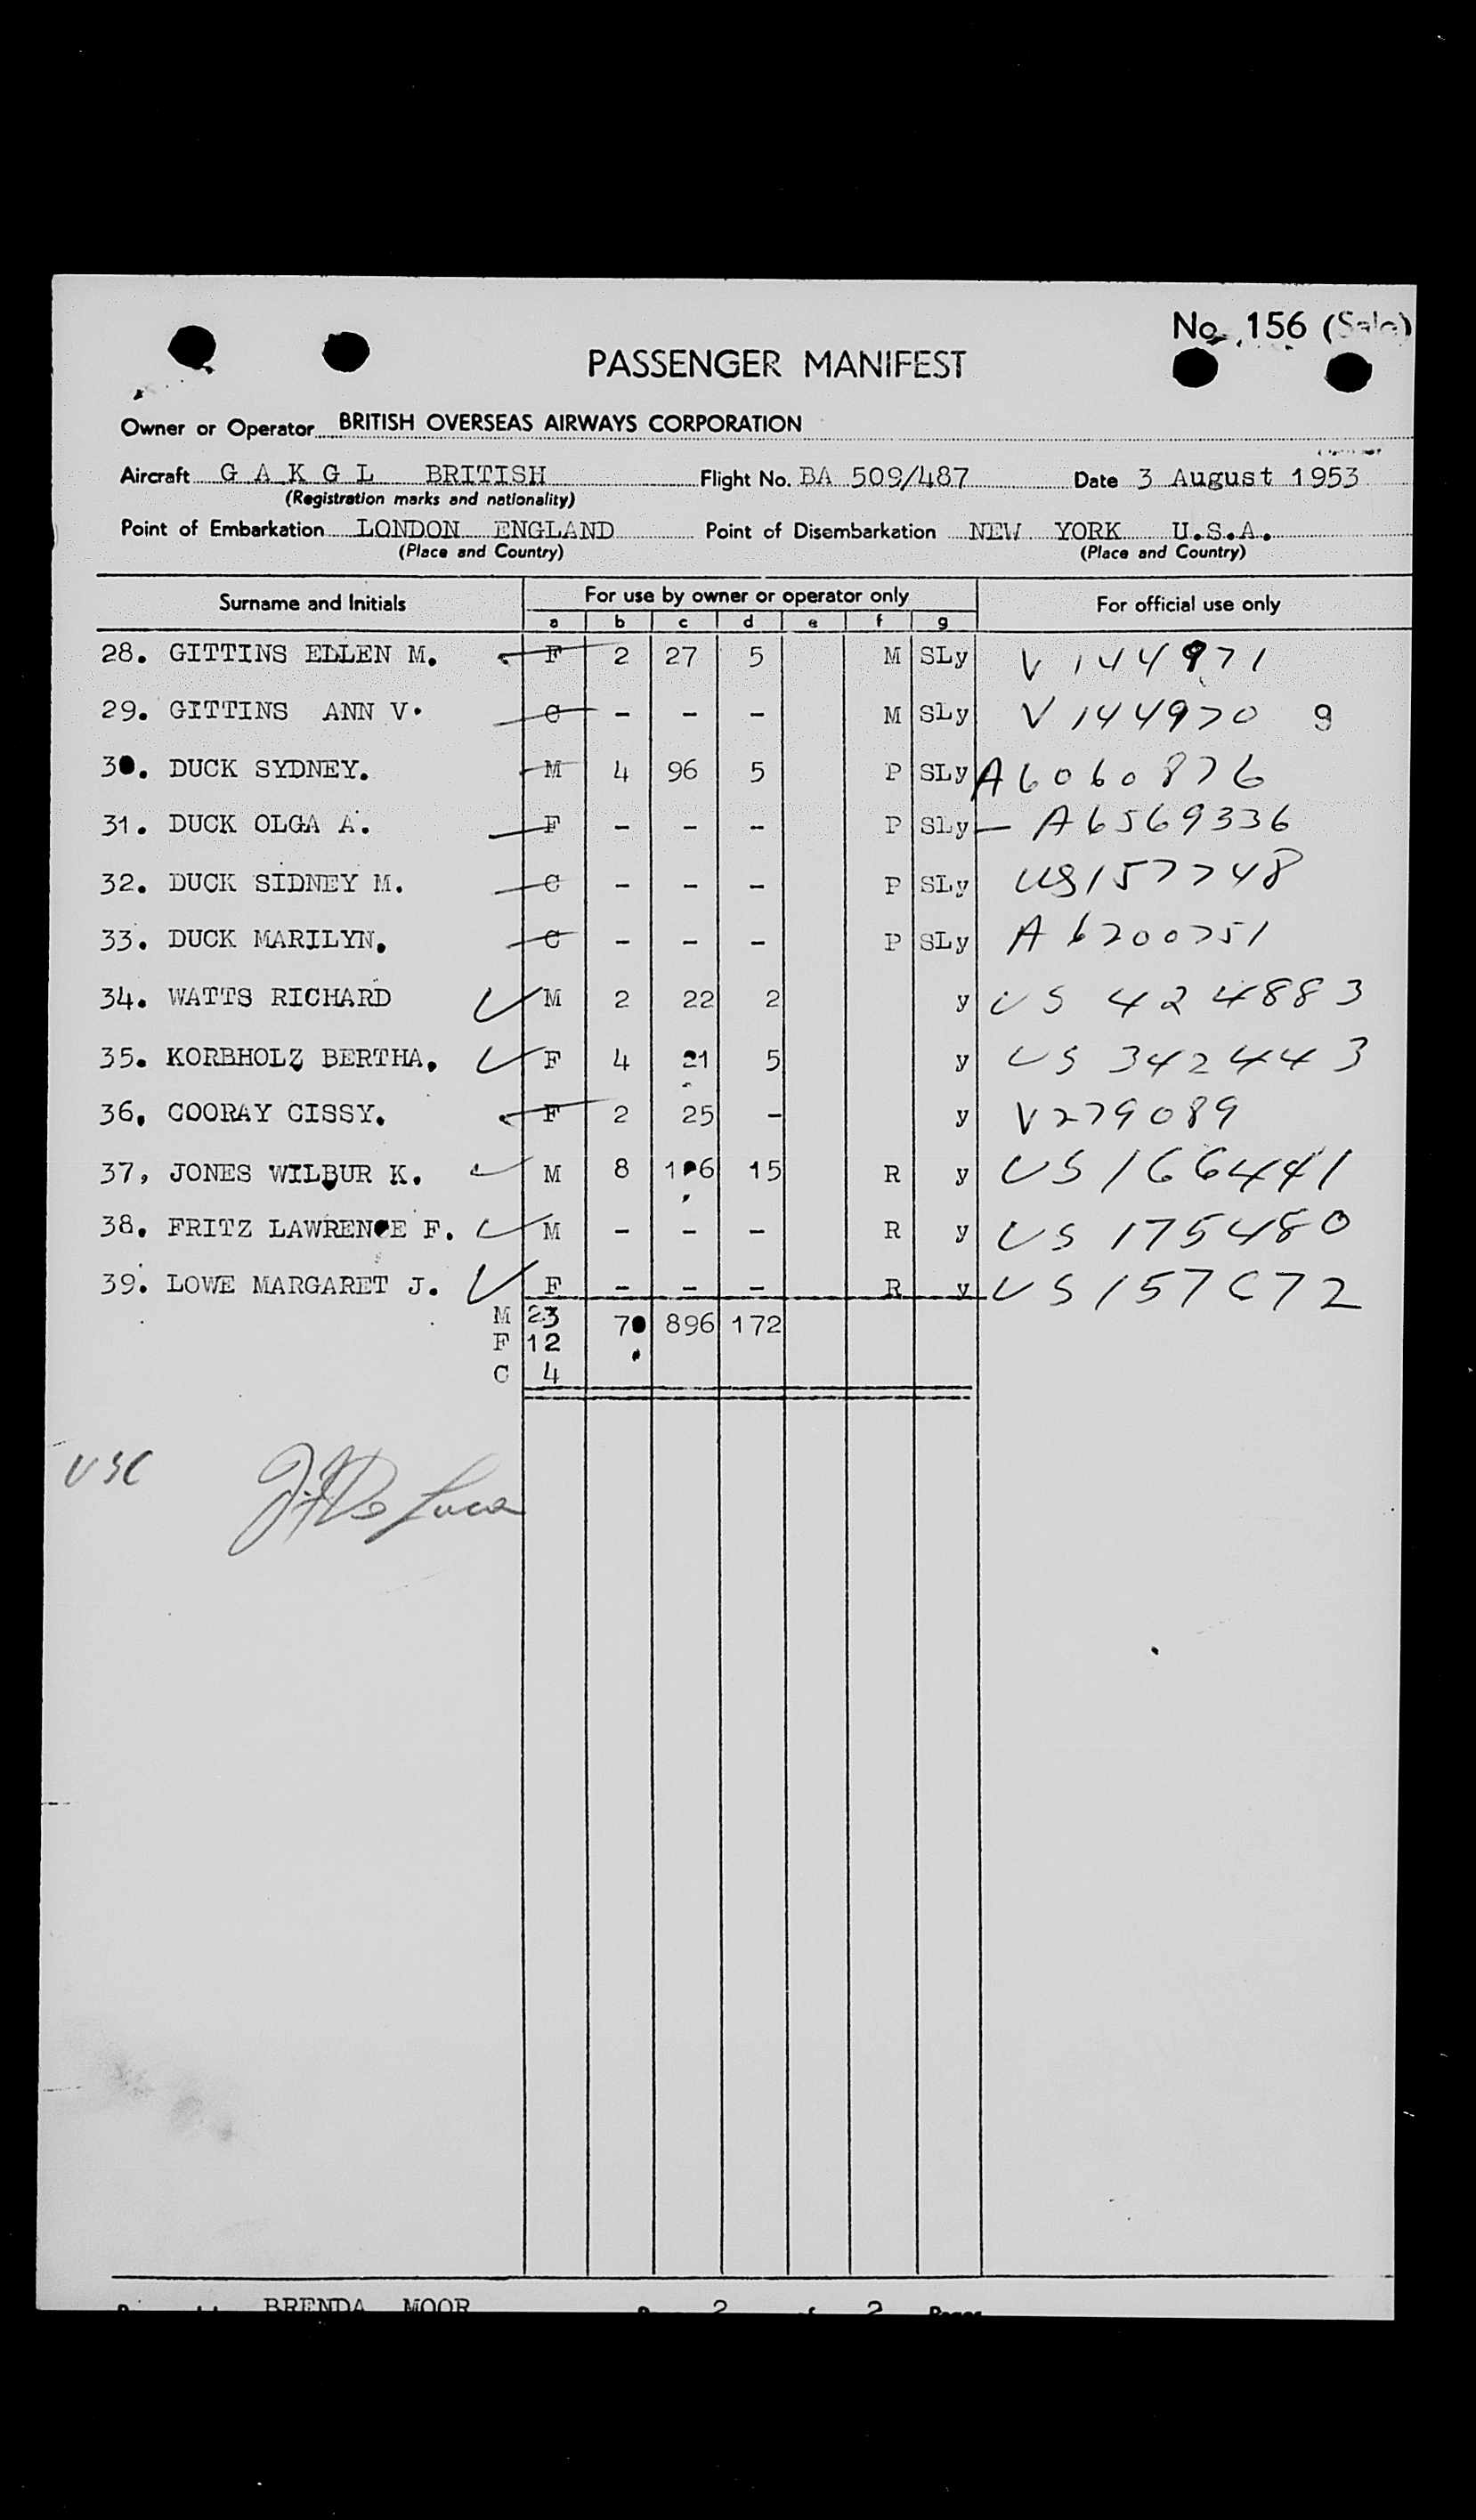 No. 156 (Sale)
PASSENGER MANIFEST
Owner or Operator BRITISH OVERSEAS AIRWAYS CORPORATION
Aircraft G A K G L BRITISH Flight No. BA 509/487 Date 3 August 1953
(Registration marks and nationality)
Point of Embarkation LONDON ENGLAND Point of Disembarkation NEW YORK U.S.A.
(Place and Country) (Place and Country)
Surname and Initials For use by owner or operator only For official use only
a b c d e f g
28. GITTINS ELLEN M. F 2 27 5 M SLy V 144971
29. GITTINS ANN V. C - - - M SLy V 144970 9
30. DUCK SYDNEY. M 4 96 5 P SLy A6060876
31. DUCK OLGA A. F - - - P SLy - A6569336
32. DUCK SIDNEY M. C - - - P SLy US157748
33. DUCK MARILYN. C - - - P SLy A6200751
34. WATTS RICHARD M 2 22 2 y US 424883
35. KORBHOLZ BERTHA. F 4 21 5 y US 342443
36. COORAY CISSY. F 2 25 - y V279089
37, JONES WILBUR K. M 8 106 15 R y US 166441
38. FRITZ LAWRENCE F. M - - - R y US 175480
39. LOWE MARGARET J. F - - - R y US 157C72
M 23 70 896 172
F 12
C 4
USC De Luca
BRENDA MOOR 2 of 2 Pages